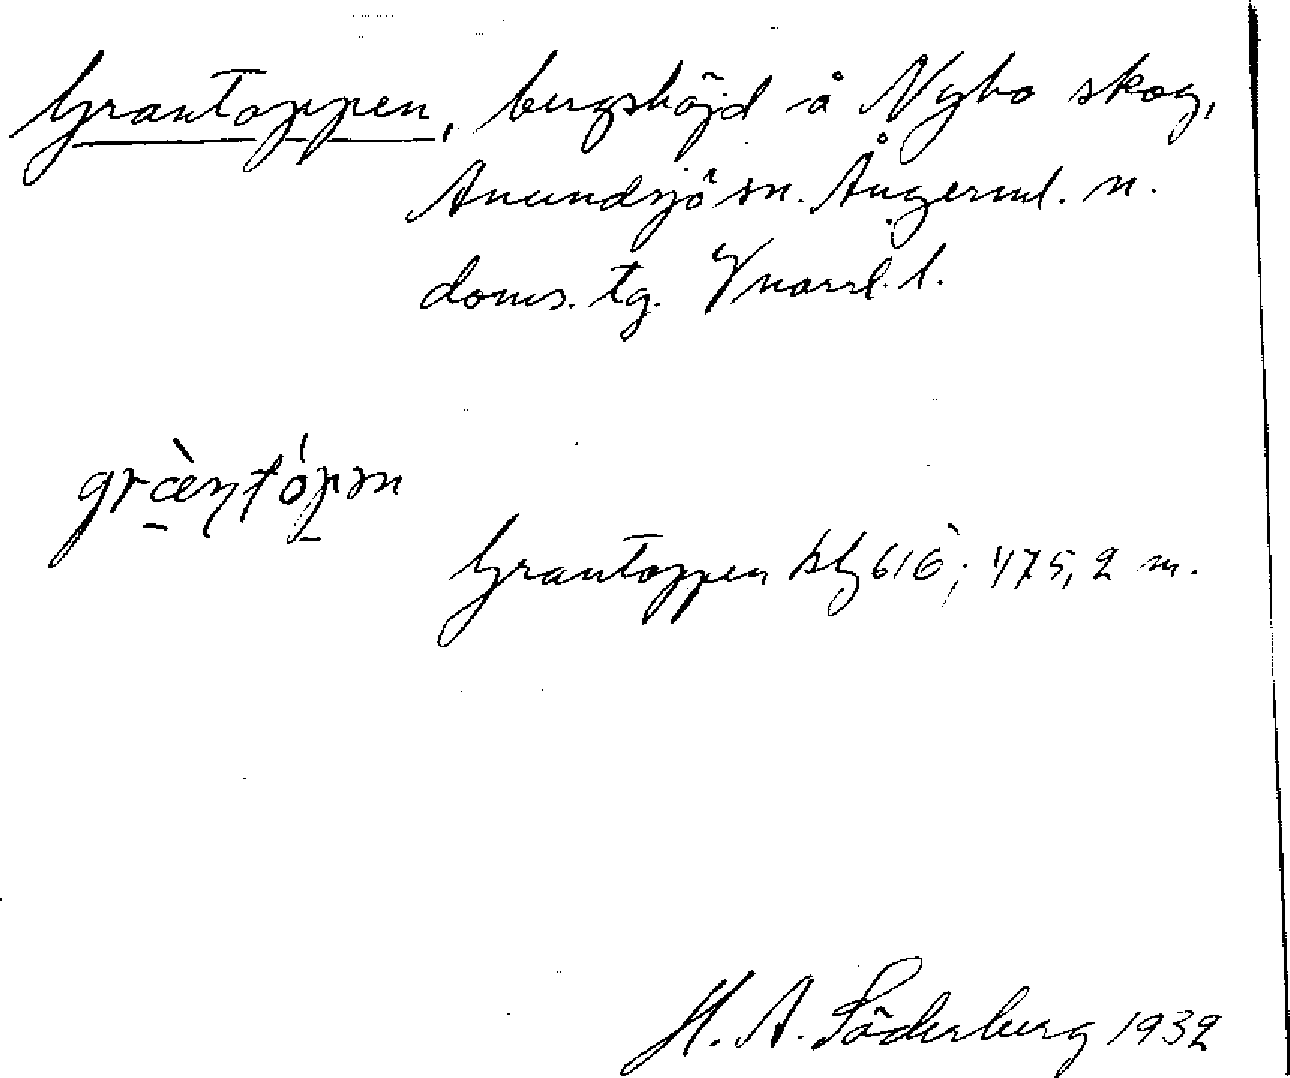 Grantoppen, bergshöjd å Nybo skog,
Anundsjö sn. Ångerml. n.
doms. tg. Vnorrl. l.
græ̀ntópm
Grantoppen kbl 616; 475,2 m.
H. A. Söderberg 1932